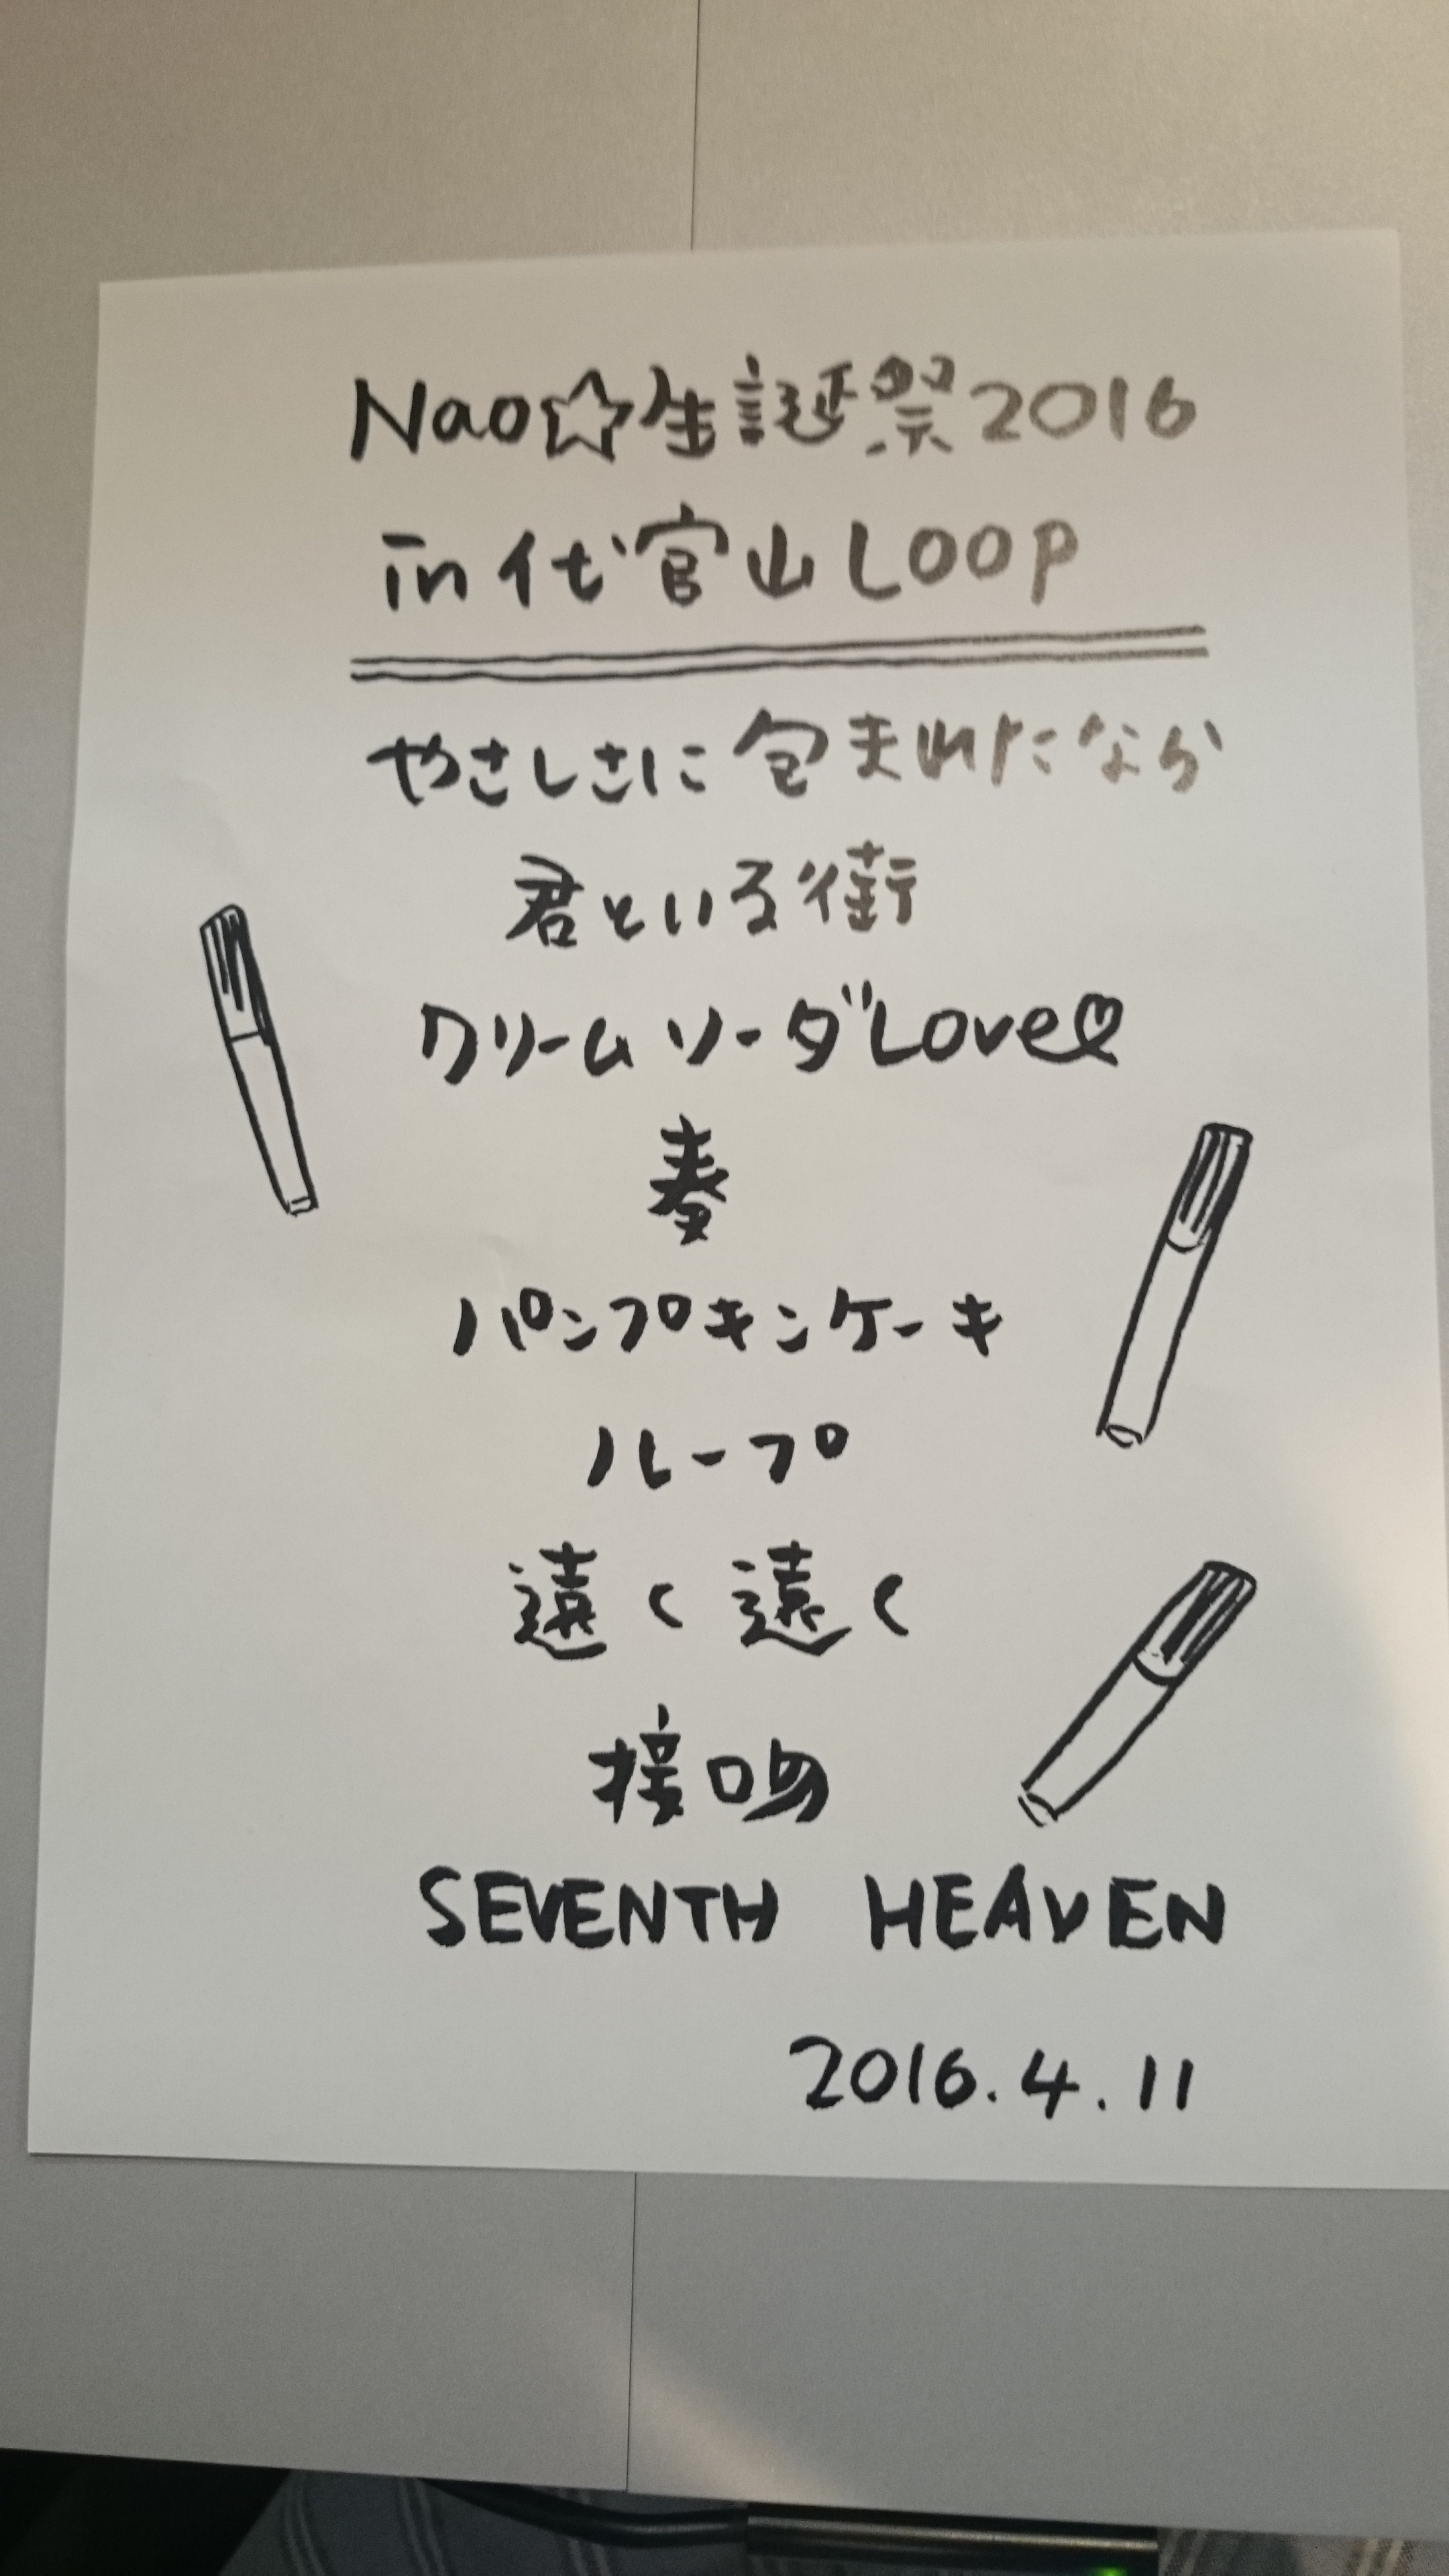 Nao☆生誕祭2016
in 代官山LOOP
やさしさに包まれたなか
君といる街
クリームソーダLove♡
奏
パンプキンケーキ
ループ
遠く遠く
接吻
SEVENTH HEAVEN
2016.4.11